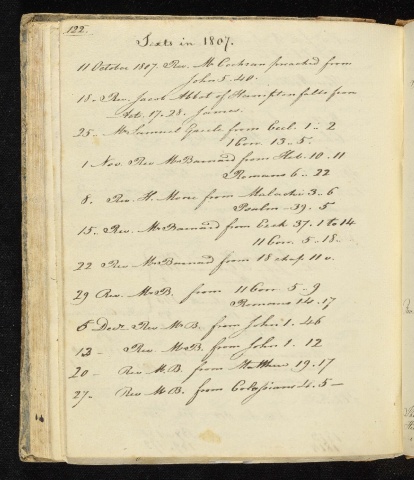 122.
Texts in 1807.
11 October 1807. Rev. Mr Cochran preached from
John 5. 40.
18. Rev. Jacob Abbot of Hampton falls from
Acts. 17. 28. James.
25. Mr Samuel from Eccl. 1.. 2
1 Corr. 13.. 5.
1 Nov. Rev Mr Barnard from Heb. 10. 11
Romans 6.. 22
8. Rev. H. More from Malachi 3.. 6
Psalm 39. 5
15. Rev. Mr Barnard from Ezek 37. 1 to 14
11 Corr. 5. 18..
22 Rev Mr Barnard from 18 chap 11 v.
29 Rev. Mr B. from 11 Corr 5. 9
Romans 14. 17
6 Decr. Rev Mr B. from John 1. 46
13 - Rev. Mr B. from John 1. 12
20 - Rev Mr B. from Matthew 19. 17
27. Rev Mr B. from Colossians 4. 5 -